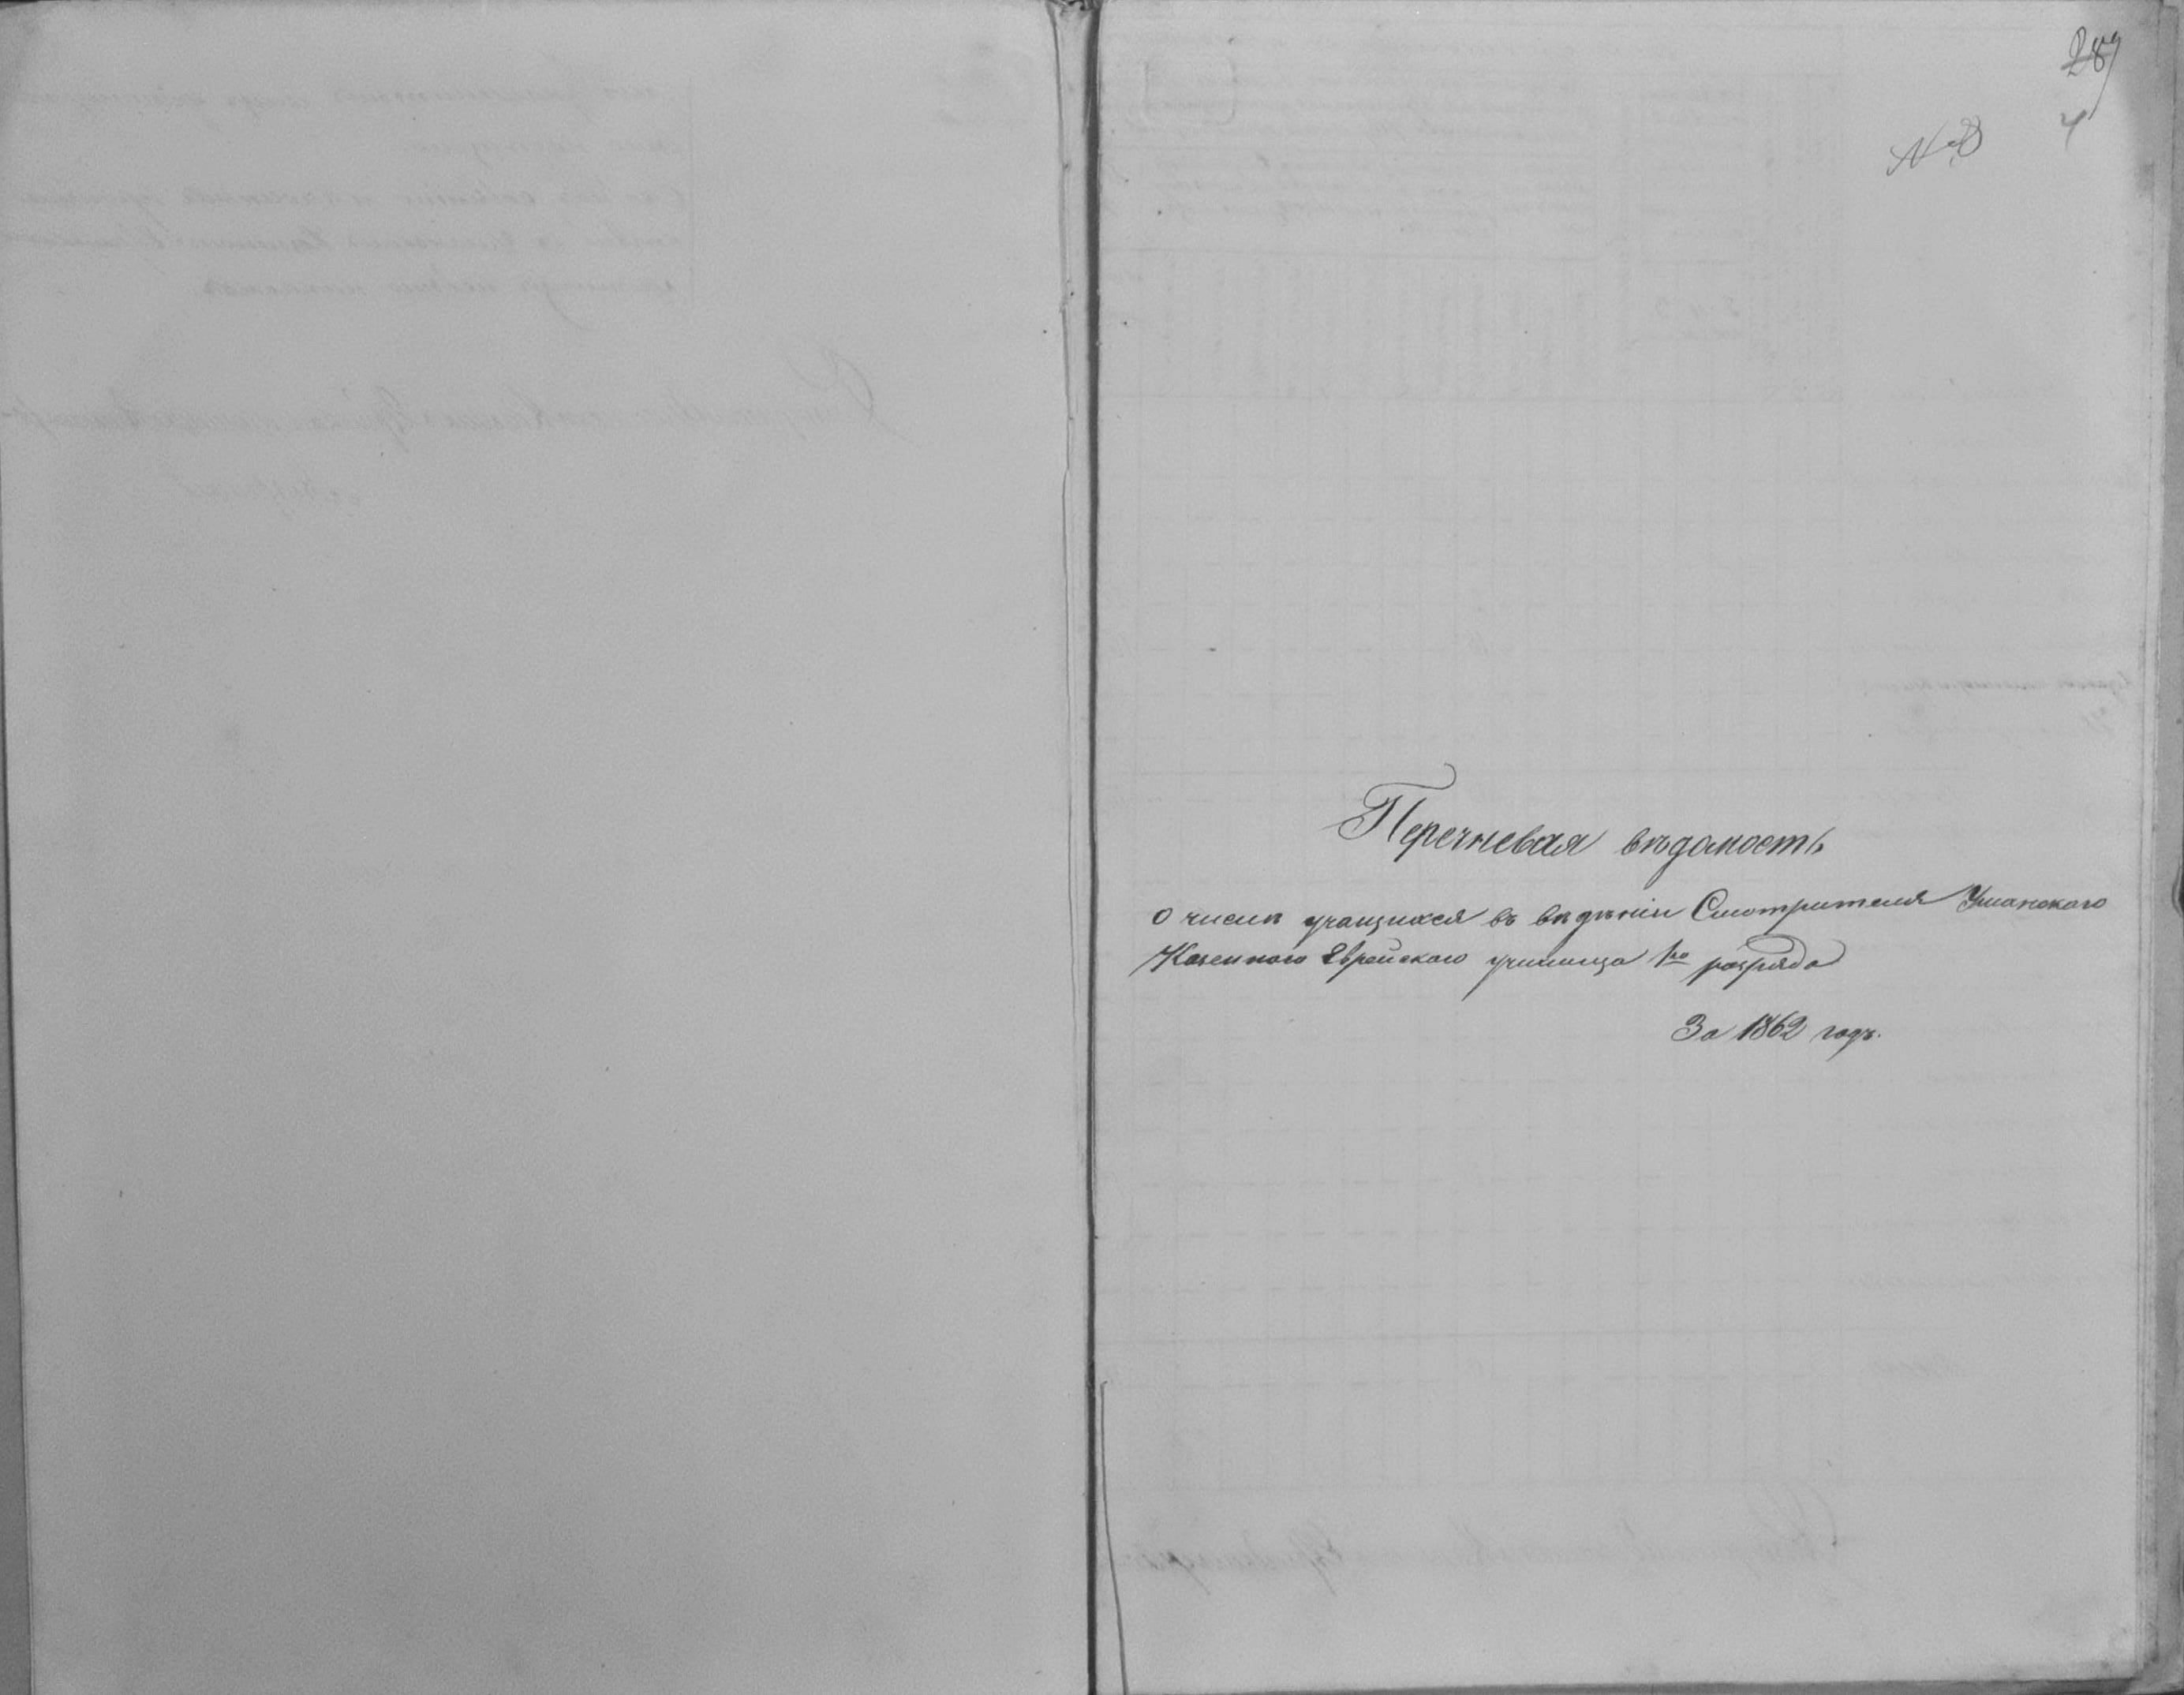 Перечневая вѣдомость
о числѣ учащихся въ вѣдѣніи Смотрителя Уманскаго
Казеннаго Еврейскаго училища 1го разряда
За 1862 годъ.